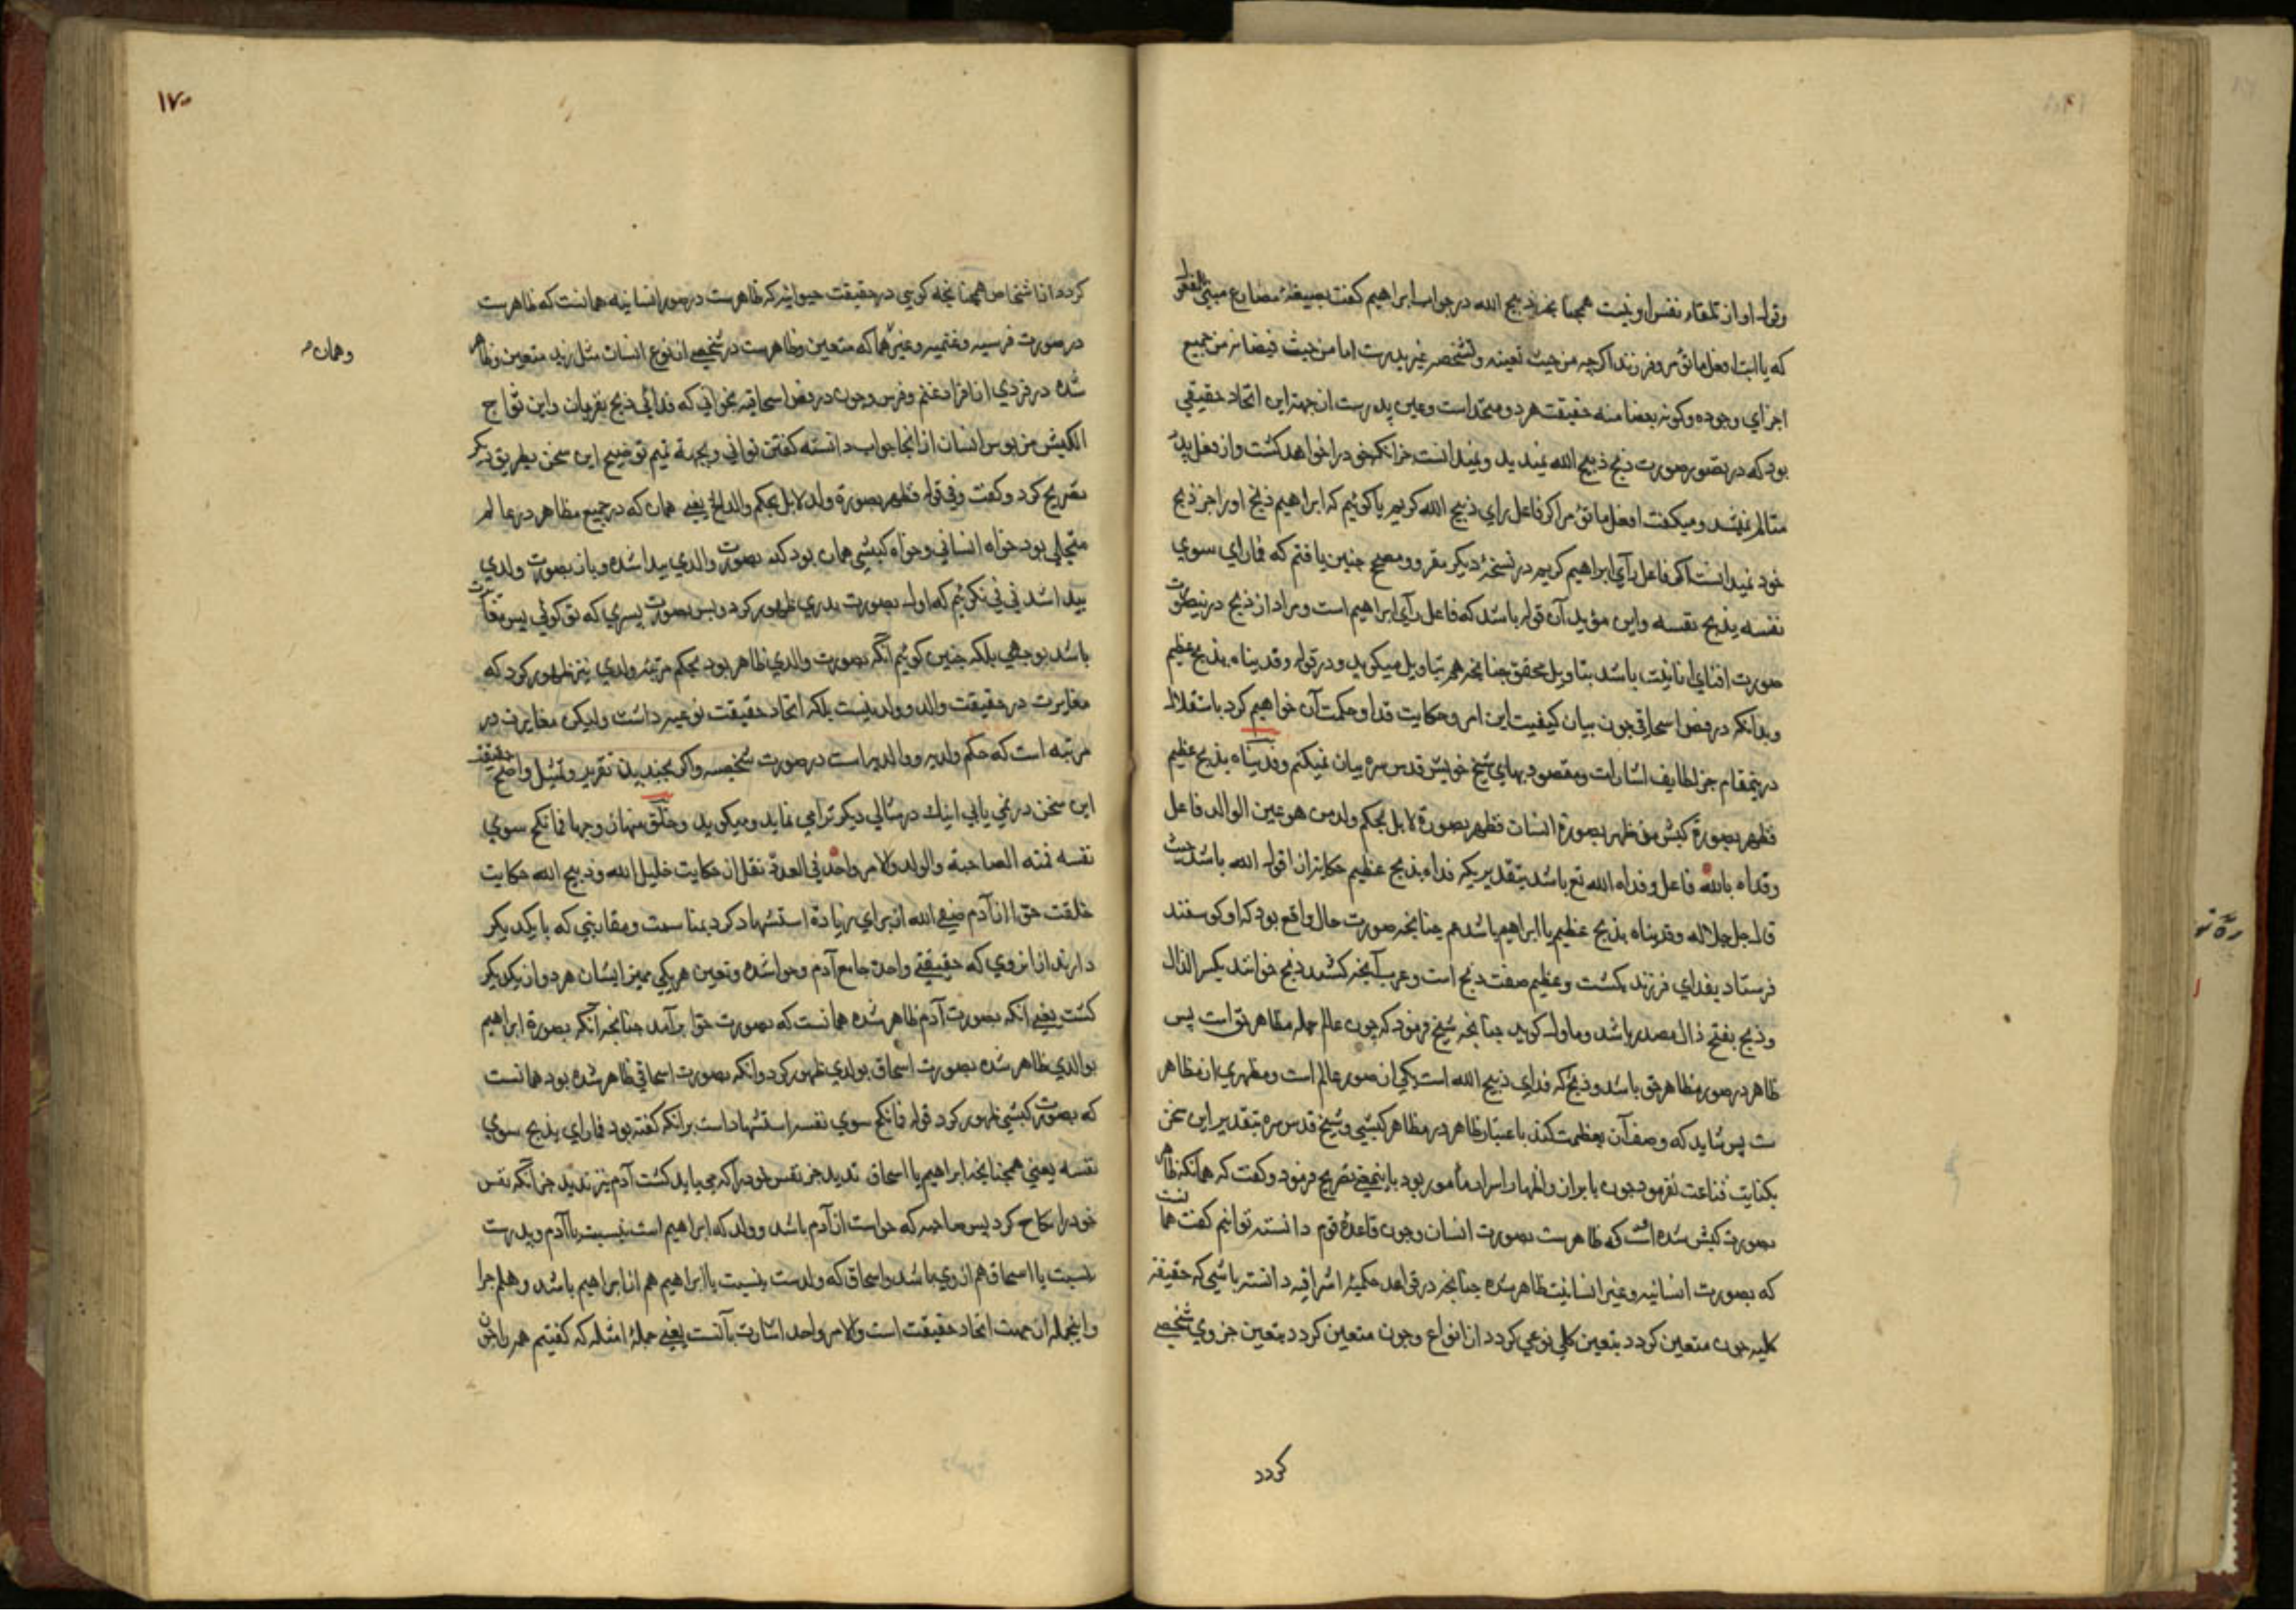 وقول او از تلقاء نفس او نیست همچنانچه ذبیح الله در جواب ابراهیم گفت بصیغهٔ مضارع مبنی
که یا ابت افعل ما تؤمر وفرزند اگرچه من حیث تعینه وتشخصه غیر پدرست اما من حیث فیضانه من جمیع
اجزای وجوده وکونه بعضا منه حقیقت هردو متحد است وعین پدرست از جهة این اتحاد حقیقی
بود که در تصور صورت ذبح ذبیح الله ندید وندانست جز آنکه خود را خواهد کشت واز فعل پدر
متألم نشد ومیگفت افعل ما تؤمر اگر فاعل رای ذبیح الله گویم یا گوئیم که ابراهیم ذبح او را جز ذبح
خود ندانست اگر فاعل رآی ابراهیم گویم در نسخهٔ دیگر مقرو ومصحح چنین یافتم که فما رای سوی
نفسه یذبح نفسه واین مؤید آن قول باشد که فاعل رآی ابراهیم است ومراد از ذبح درین صورت
صورت افنای انانیت باشد بتاویل محقق چنانچه هم بتاویل میگوید ودر قوله وفدیناه بذبح عظیم
وبدانکه در فص اسحاقی چون بیان کیفیت این امر وحکایت فدا وحکمت آن خواهیم کرد باستقلال
درینمقام جز لطایف اشارات ومقصود بهای شیخ خویش قدس سره بیان نمیکنم وفدیناه بذبح عظیم
فظهر بصورة کبش من ظهر بصورة انسان فظهر بصورة لا بل بحکم ولد من هو عین الوالد فاعل
وفداه بالله فاعل وفداه الله تع باشد بتقدیر یکه فداه بذبح عظیم حکایتران قول الله باشد حیث
قال جل جلاله وفدیناه بذبح عظیم یا ابراهیم باشد هم چنانچه صورت حال واقع بود که او گوسفند
فرستاد بفدای فرزند بکشت وعظیم صفت ذبح است وعرب آنچه کشند ذبح خوانند بکسر الذال
وذبح بفتح ذال مصدر باشد وما ول گویم چنانچه شیخ فرمود که چون عالم جمله مظاهر حق است پس
ظاهر در صور مظاهر حق باشد وذبح که فدای ذبیح الله است یکی از صور عالم است ومظهری از مظاهر
ت پس شاید که وصف آن بعظمت کند باعتبار ظاهر در مظاهر کبشی وشیخ قدس سره بتقدیر این سخن
بکنایت قناعت نفرمود چون با براز واظهار اسرار مأمور بود باینمعنی تصریح فرمود وگفت که همانکه ظاهر
بصورت کبش شده است که ظاهرست بصورت انسان وچون قاعدهٔ قوم دانسته توانم گفت همانست
که بصورت انسانیه وغیر انسانیت ظاهر شده چنانچه در قواعد حکمیهٔ اشراقیه دانسته باشی که حقیقة
کلیه چون متعین گردد بتعین کلی نوعی گردد از انواع وچون متعین گردد بتعین جزوی شخصی
گردد
۱۷۰
گردد از اشخاص همچنانچه گویی در حقیقت حیوانیه که ظاهرست در صور انسانیه همانست که ظاهرست
در صورت فرسیه وغنمیه وغیرهما که متعین وظاهرست در شخصی از نوع انسان مثل زید متعین وظاهر
وهمان
شده در فردی از افراد غنم وفرس وچون در فص اسحاقیه بخوانی که فدائی ذبح بقربان واین ثواج
الکبش من بوس انسان از انجا جواب دانسته گفتن توانی وبجهة تیم توضیح این سخن بطریق دیگر
تصریح کرد وگفت وفی قوله فظهر بصورة ولد لا بل بحکم والد الخ یعنی همان که در جمیع مظاهر در عالم
متجلی بود خواه انسانی وخواه کبشی همان بود که بصورت والدی پیدا شده وباز بصورت ولدی
پیدا شد نی نی نگوئیم که اول بصورت پدری ظهور کرد وپس بصورت پسری که تو گوئی پس مغایرت
باشد بوجهی بلکه چنین گوئیم آنکه بصورت والدی ظاهر بود بحکم مرتبهٔ ولدی نیز ظهور کرد که
مغایرت در حقیقت والد وولد نیست بلکه اتحاد حقیقت نوعیه داشت ولیکن مغایرت در
مرتبه است که حکم ولدیه ووالدیه است در صورت شخصیه واگر بچندین تقریر وتمثیل واضح حقیقت
این سخن در نمی یابی اینک در مثالی دیگر ترا می نماید ومیگوید وخلق منها زوجها فما نکح سوی
نفسه فمنه الصاحبة والولد والامر واحد فی العدد نقل از حکایت خلیل الله وذبیح الله حکایت
خلقت حوا از آدم صفی الله از برای زیادة استشهاد کرد بمناسبت ومقاربتی که با یکدیگر
دارند از انروی که حقیقتی واحدة جامع آدم وحوا شده وتعین هر یکی ممیز ایشان هردو از یکدیگر
گشت یعنی آنکه بصورت آدم ظاهر شده همانست که بصورت حوا برآمد چنانچه آنکه بصورة ابراهیم
بوالدی ظاهر شده بصورت اسحاق بولدی ظهور کرد وانکه بصورت اسحاقی ظاهر شده بود همانست
که بصورت کبشی ظهور کرد قوله فما نکح سوی نفسه استشهاد است برانکه گفته بود فما رای یذبح سوی
نفسه یعنی همچنانچه ابراهیم یا اسحاق ندید جز نفس خود را که می باید کشت آدم نیز ندید جز آنکه نفس
خود را نکاح کرد پس صاحبه که حواست از آدم باشد وولد که ابراهیم است بنسبت با آدم وپدرست
بنسبت با اسحاق هم از وی باشد واسحاق که ولدست بنسبت با ابراهیم هم از ابراهیم باشد وهلم جرا
واینجمله از جهت اتحاد حقیقت است والامر واحد اشارت بآنست یعنی جملهٔ امثله که گفتیم همه را